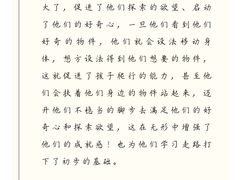 大了，促进了他们探索的欲望、启动
了他们的好奇心，一旦他们看到他们
好奇的物件，他们就会设法移动身
体，想方设法得到他们想要的物件，
这就促进了孩子爬行的能力，甚至他
们会扶着他们身边的物件站起来，迈
开他们不稳当的脚步去满足他们的好
奇心和探索欲望，这在无形中增强了
他们的成就感！也为他们学习走路打
下了初步的基础。